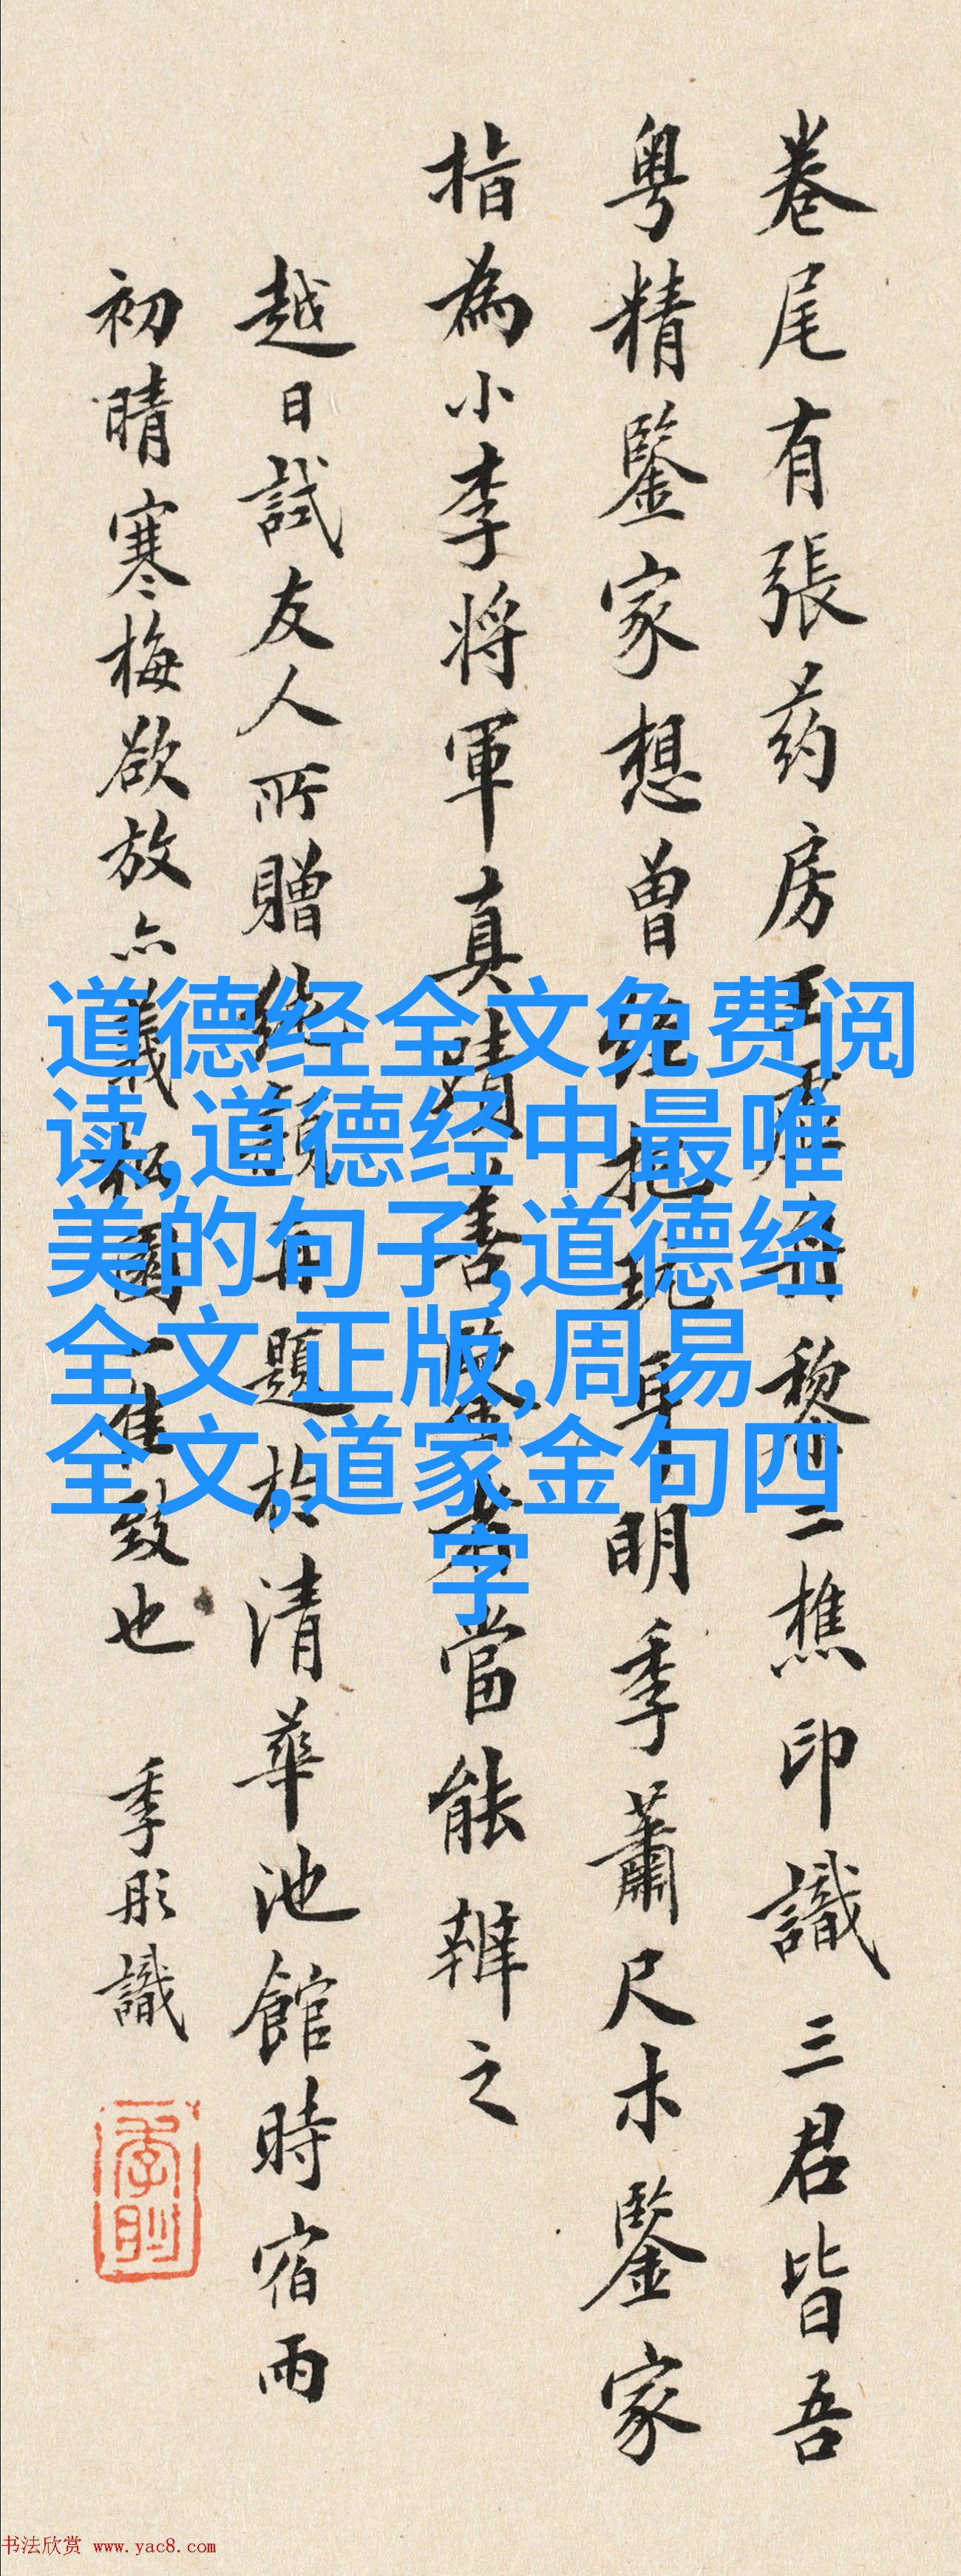 卷尾有張药房王
黎二樵印識三君皆吾
粤精鑒家想曾
明季蕭尺木鑒家
指為小李將軍真
當能辨之
越日試友人所贈
題於清華池館時宿雨
初晴寒梅欲放亦
致也
季彤識
道德经全文免费阅
读,道德经中最唯
美的句子,道德经
全文正版,周易
全文,道家金句四
字
书法欣赏 www.yac8.com